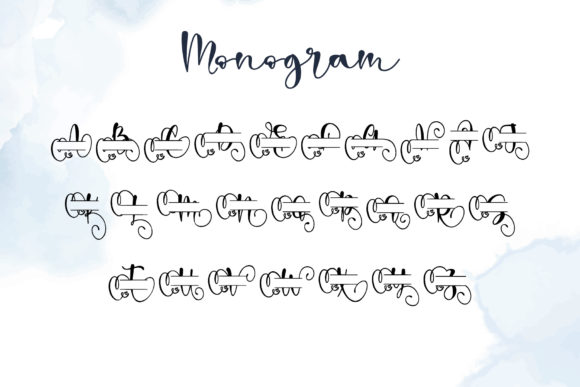 Monogram
A B C D E F G H I J
K L M N O P Q R S
T U V W X Y Z